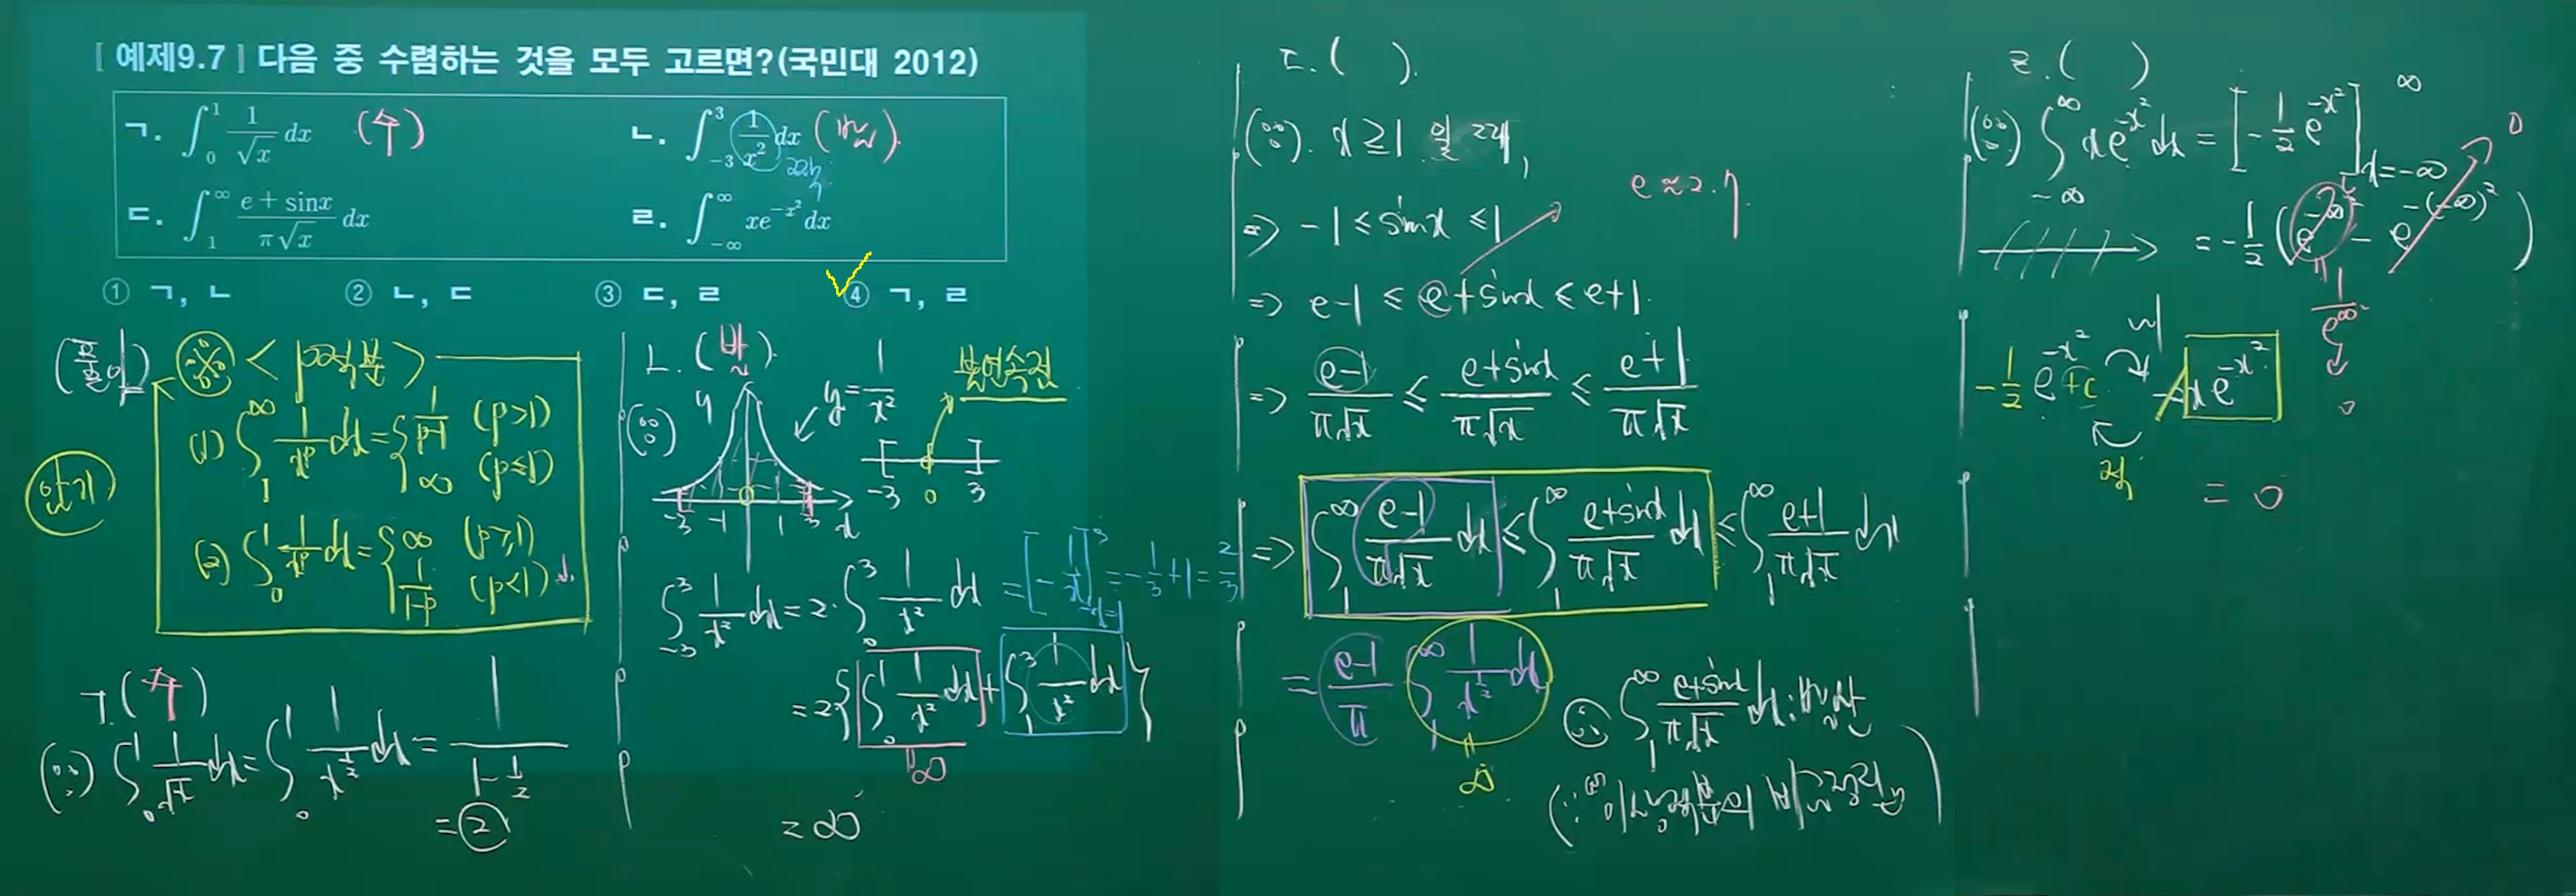 [ 예제9.7 ] 다음 중 수렴하는 것을 모두 고르면?(국민대 2012)
ㄱ. ∫₀¹ 1/√x dx (수)
ㄴ. ∫₋₃³ 1/x² dx (발).
ㄷ. ∫₁^∞ (e + sinx)/(π√x) dx
ㄹ. ∫₋∞^∞ xe^(-x²) dx
① ㄱ, ㄴ ② ㄴ, ㄷ ③ ㄷ, ㄹ ④ ㄱ, ㄹ
(풀이) ※ < 이상적분 >
암기
(1) ∫₁^∞ 1/x^p dx = { 1/(p-1) (p>1)
∞ (p≤1)
(2) ∫₀¹ 1/x^p dx = { ∞ (p≥1)
1/(1-p) (p<1)
ㄱ. (수)
(∵) ∫₀¹ 1/√x dx = ∫₀¹ 1/x^(1/2) dx = 1/(1-1/2)
= 2
ㄴ. (발).
(∵) y y = 1/x² 불연속점
-3 -1 1 3 x
-3 0 3
∫₋₃³ 1/x² dx = 2·∫₀³ 1/x² dx
= [-1/x]³ₓ₌₁ = -1/3+1 = 2/3
= 2{∫₀¹ 1/x² dx + ∫₁³ 1/x² dx}
∞
= ∞
ㄷ. ( ).
(∵). x ≥ 1 일 때,
e ≈ 2.7
=> -1 ≤ sinx ≤ 1
=> e-1 ≤ e+sinx ≤ e+1.
=> (e-1)/(π√x) ≤ (e+sinx)/(π√x) ≤ (e+1)/(π√x)
=> ∫₁^∞ (e-1)/(π√x) dx ≤ ∫₁^∞ (e+sinx)/(π√x) dx ≤ ∫₁^∞ (e+1)/(π√x) dx
= (e-1)/π ∫₁^∞ 1/x^(1/2) dx
∞
∴ ∫₁^∞ (e+sinx)/(π√x) dx : 발산
(∵ 이상적분의 비교판정법)
ㄹ. ( )
(∵) ∫₋∞^∞ xe^(-x²) dx = [-1/2 e^(-x²)]^∞ₓ₌₋∞
= -1/2 (e^(-∞²) - e^(-(-∞)²))
0
1/e^∞
0
-1/2 e^(-x²) +c 미 xe^(-x²)
적
= 0